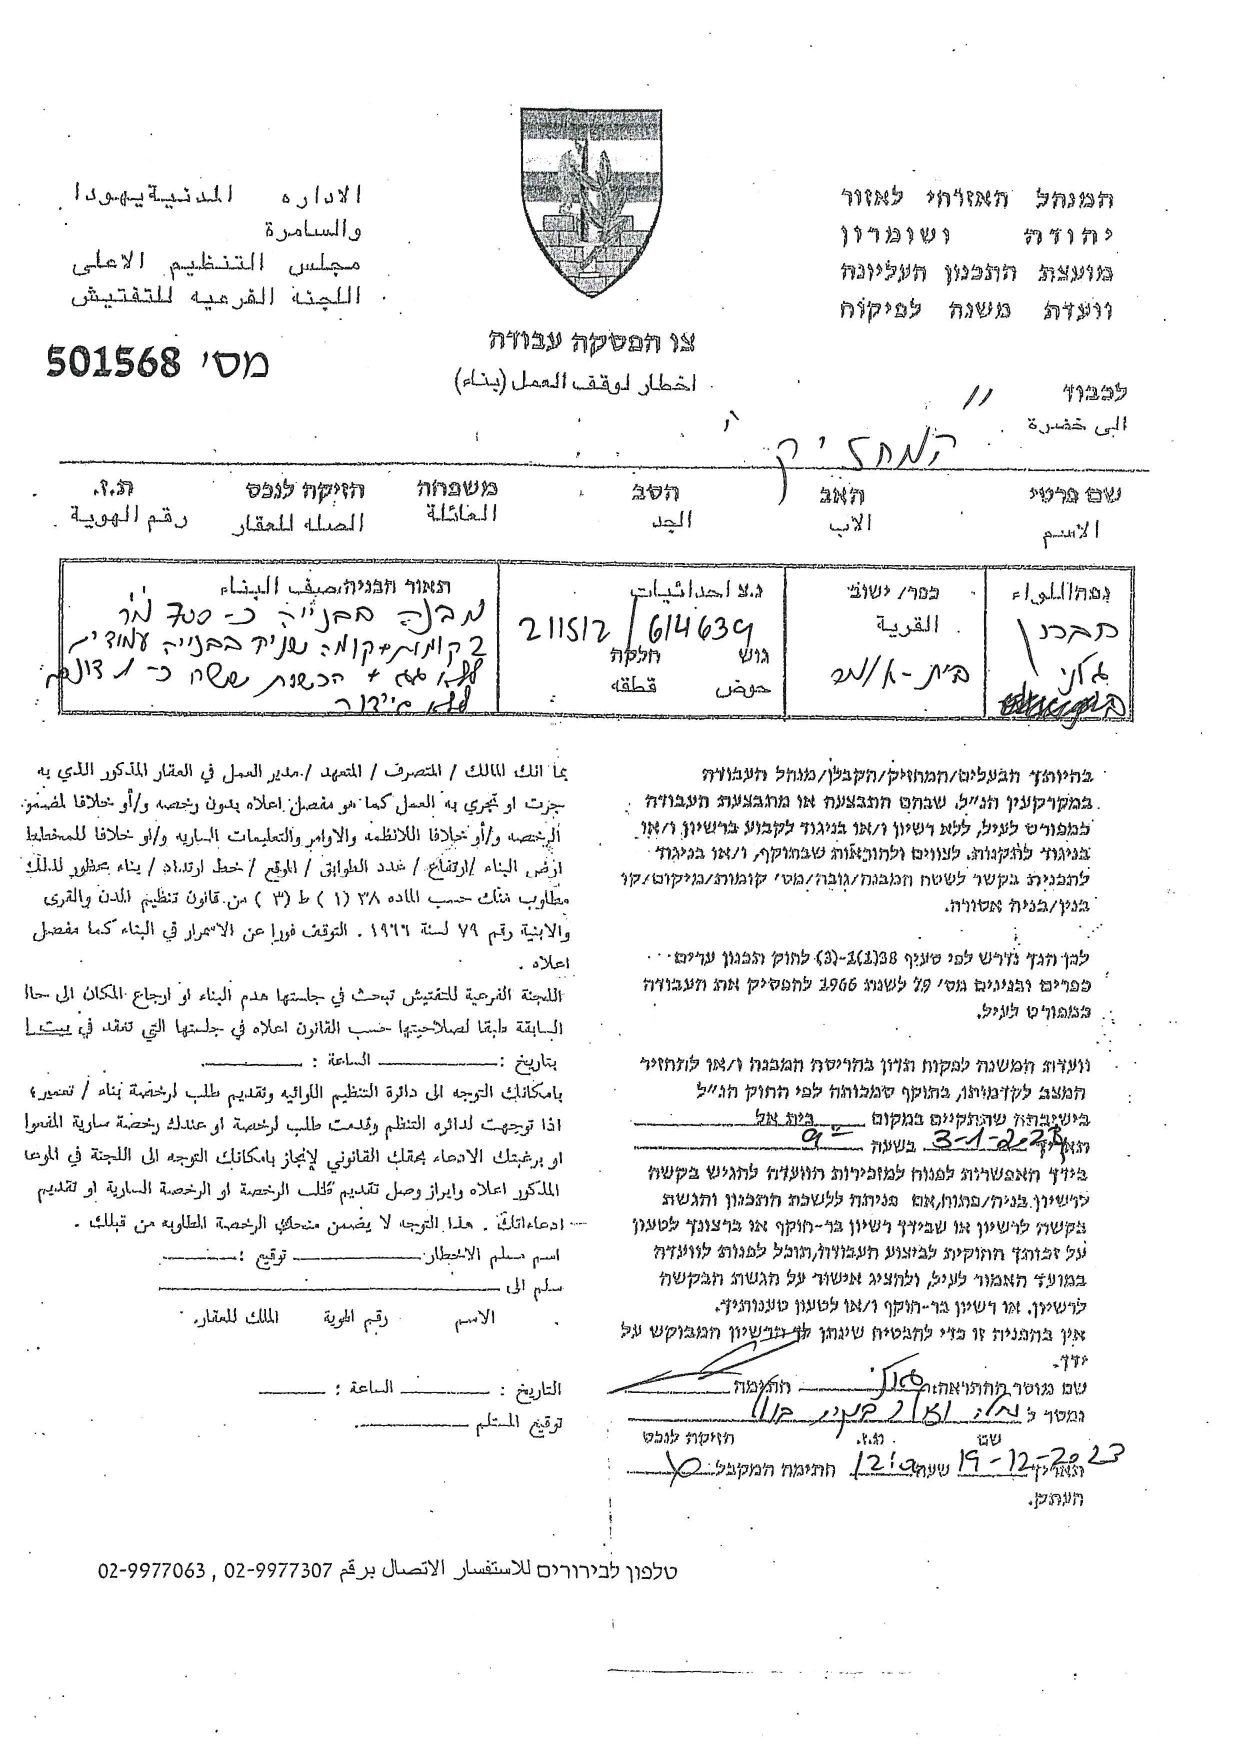 המנהל האזרחי לאזור
יהודה ושומרון
מועצת התכנון העליונה
וועדת משנה לפיקוח
الاداره المدنية يهودا
والسامرة
مجلس التنظيم الاعلى
اللجنة الفرعيه للتفتيش
צו הפסקה עבודה
اخطار لوقف العمل (بناء)
מס׳ 501568
לכבוד
الى حضرة
" המחזיק "
שם פרטי האב הסב משפחה הזיקה לנכס ת.ז.
الاسم الاب الجد العائلة الصله للعقار رقم الهوية
נפה/اللواء
חברון
כפר/ ישוב
القرية
בית-אומר
נ.צ احداثيات
211512/614639
גוש חלקה
حوض قطقه
תאור הבניה/صيف البناء
מבנה בבנייה כ-700 מ"ר
2 קומות+קומה שניה בבנייה עמודים
ללא גג + הכשרת שטח כ-1 דונם
בהיותך הבעלים/המחזיק/הקבלן/מנהל העבודה
במקרקעין הנ״ל, שבהם התבצעה או מתבצעת העבודה
כמפורט לעיל, ללא רשיון ו/או בניגוד לקבוע ברשיון ו/או
בניגוד לתקנות, לצווים ולהוראות שבתוקף, ו/או בניגוד
לתכנית בקשר לשטח המבנה/גובה/מס׳ קומות/מיקום/קו
בנין/בניה אסורה.
לכן הנך נדרש לפי סעיף 38(1)1-(3) לחוק תכנון ערים
כפרים ובנינים מס׳ 79 לשנת 1966 להפסיק את העבודה
כמפורט לעיל.
וועדת המשנה לפקוח תדון בהריסת המבנה ו/או להחזיר
המצב לקדמותו, בתוקף סמכותה לפי החוק הנ״ל
בישיבתה שתתקיים במקום בית אל
תאריך 3-1-2023 בשעה 9
בידך האפשרות לפנות למזכירות הוועדה להגיש בקשה
לרשיון בניה/פתוח, אם פניתה ללשכת התכנון והגשת
בקשה לרשיון או שבידך רשיון בר-תוקף או ברצונך לטעון
על זכותך החוקית לביצוע העבודה, תוכל לפנות לוועדה
במועד האמור לעיל, ולהציג אישור על הגשת הבקשה
לרשיון, או רשיון בר-תוקף ו/או לטעון טענותיך.
אין בהפניה זו כדי להבטיח שינתן לך הרשיון המבוקש על
ידך.
שם מוסר ההתראה חתימה
נמסר ל
שם ת.ז. הזיקה לנכס
תאריך 19-12-2023 שעה 12:0 חתימה המקבל
העתק.
بما انك المالك / المتصرف / المتعهد / مدير العمل في العقار المذكور الذي به
جرت او تجري به العمل كما هو مفصل اعلاه بدون رخصه و/أو خلافا لمضمون
الرخصه و/أو خلافا اللانظمه والاوامر والتعليمات الساريه و/او خلافا للمخطط
ارض البناء /ارتفاع / عدد الطوابق / الموقع / خط ارتداد / بناء محظور لذلك
مطلوب منك حسب الماده ٣٨ (١) ط (٣) من قانون تنظيم المدن والقرى
والابنية رقم ٧٩ لسنة ١٩٦٦ . التوقف فورا عن الاسمرار في البناء كما مفصل
اعلاه .
اللجنة الفرعية للتفتيش تبحث في جلستها هدم البناء او ارجاع المكان الى حالا
السابقة طبقا لصلاحيتها حسب القانون اعلاه في جلستها التي تعقد في بيت ا
بتاريخ : الساعة :
بامكانك التوجه الى دائرة التنظيم اللوائيه وتقديم طلب لرخصة بناء / تعمير؛
اذا توجهت لدائره التنظم وقدمت طلب لرخصة او عندك رخصة سارية المفعوا
او برغبتك الادعاء بحقك القانوني لإنجاز بامكانك التوجه الى اللجنة في الموعا
المذكور اعلاه وابراز وصل تقديم طلب الرخصة او الرخصة السارية او تقديم
ادعاءاتك . هذا التوجه لا يضمن منحك الرخصة المطلوبه من قبلك .
اسم مسلم الاخطار: توقيع :
سلم الى
الاسم رقم الهوية الملك للعقار.
التاريخ : الساعة :
توقيع المستلم
טלפון לבירורים للاستفسار الاتصال برقم 02-9977307 , 02-9977063